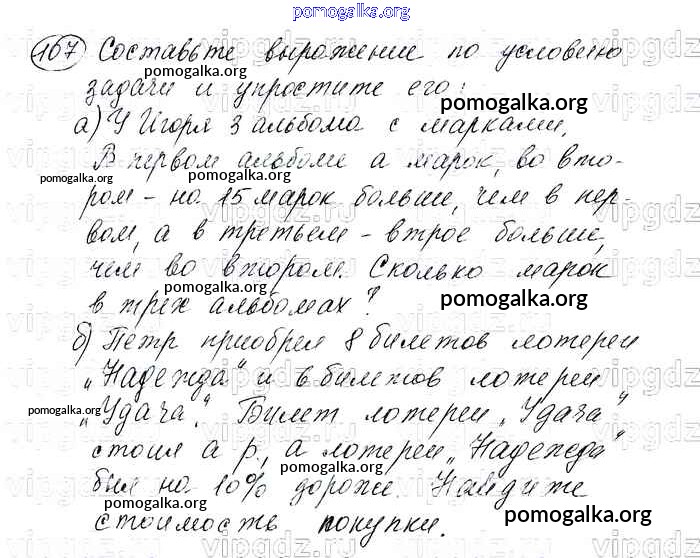 pomogalka.org
167 Составьте выражение по условию
pomogalka.org
задачи и упростите его:
pomogalka.org
а) У Игоря 3 альбома с марками.
В первом альбоме а марок, во вто-
pomogalka.org
ром - на 15 марок больше, чем в пер-
вом, а в третьем - втрое больше,
pomogalka.org
чем во втором. Сколько марок
в трех альбомах?
pomogalka.org
pomogalka.org
б) Петр приобрел 8 билетов лотереи
„Надежда" и в билетов лотереи
pomogalka.org
„Удача". Билет лотереи „Удача"
стоил а р., а лотереи „Надежда"
pomogalka.org
был на 10% дороже. Найдите
стоимость покупки.
pomogalka.org
vipgdz.ru